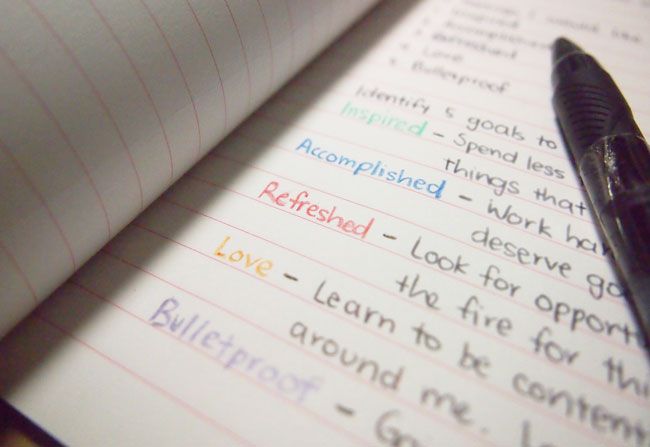 I would like
Inspired
Accomplished
Refreshed
Love
Bulletproof
Identify 5 goals to
Inspired - Spend less
things that
Accomplished - Work har
deserve go
Refreshed - Look for opport
the fire for thi
Love - Learn to be content
around me. L
Bulletproof - Go